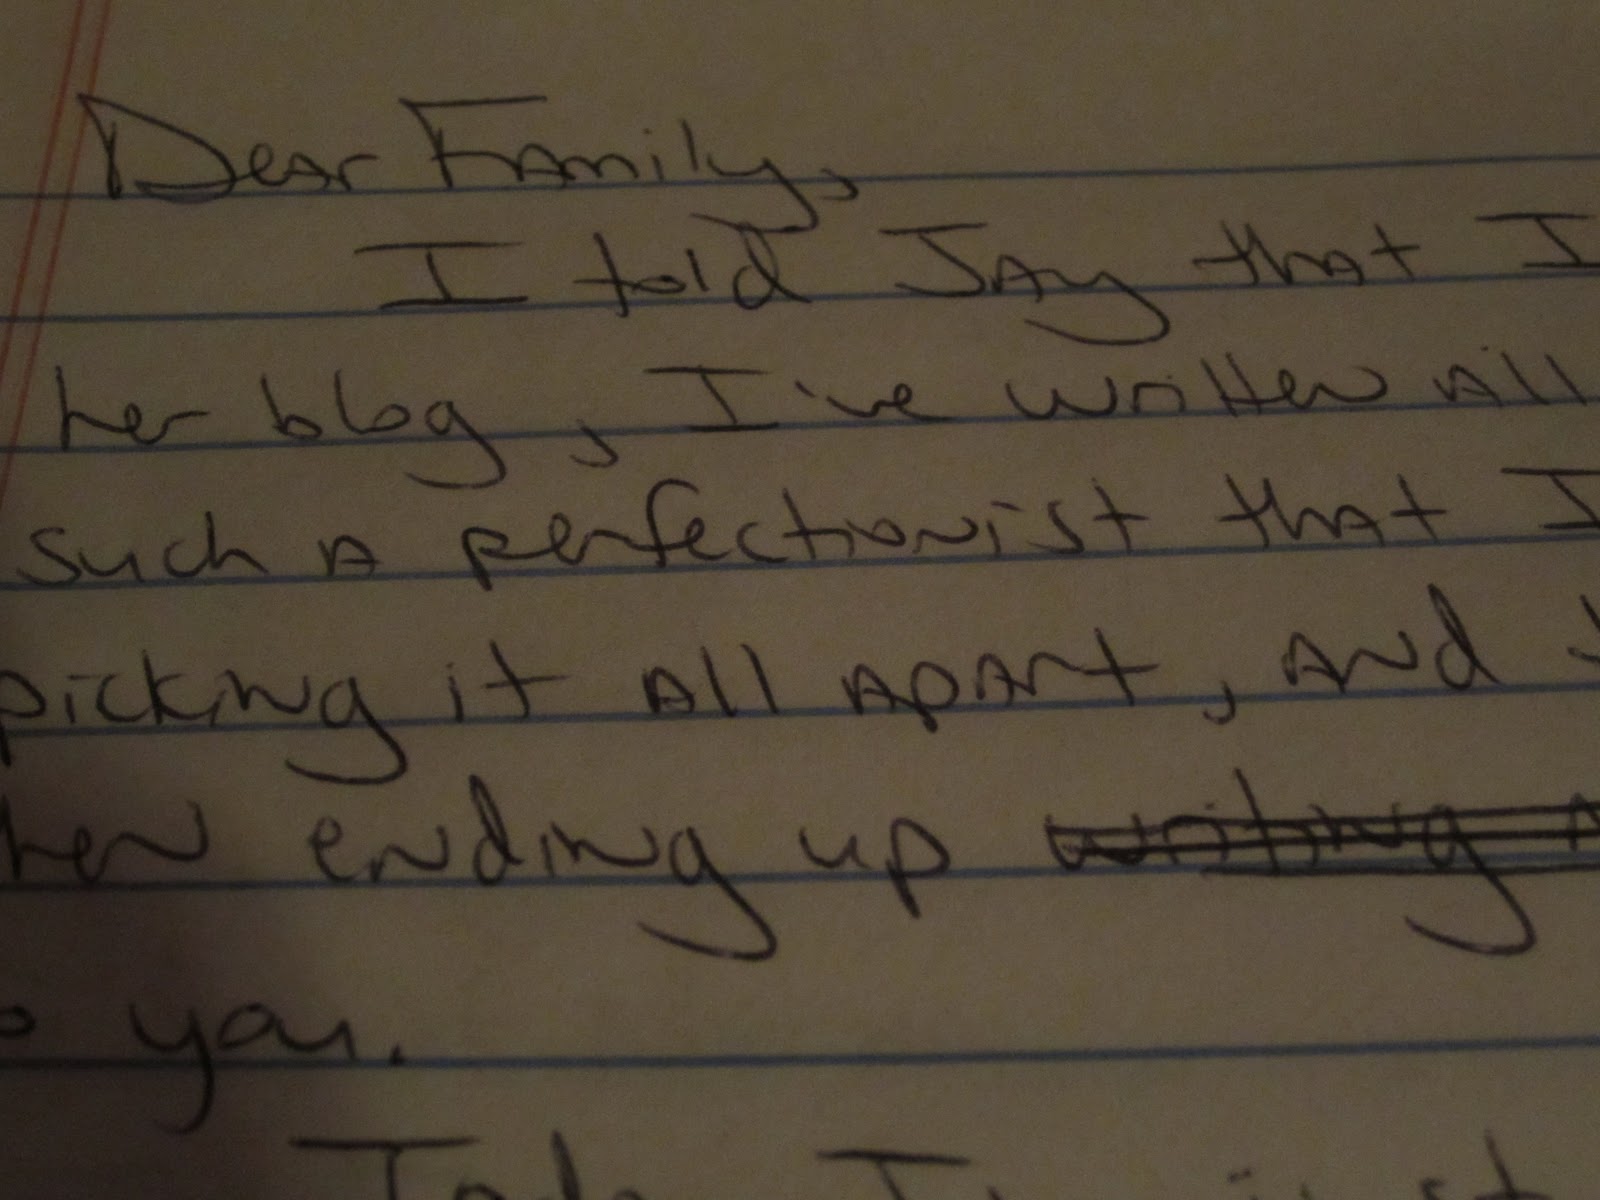 Dear Family,
I told Jay that I
her blog, I've written all
such a perfectionist that I
picking it all apart, and
hen ending up writing
o you.